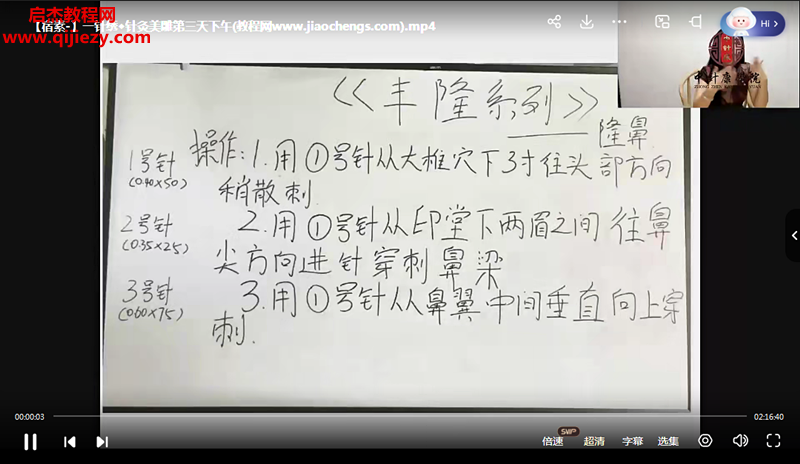 启杰教程网
www.qijiezy.cn
针灸美雕第三天下午(教程网www.jiaochengs.com).mp4
Hi
《丰隆系列》
隆鼻
1号针
(0.40×50)
操作:1.用①号针从大椎穴下3寸往头部方向
稍散刺.
2号针
(0.35×25)
2.用①号针从印堂下两眉之间往鼻
尖方向进针穿刺鼻梁
3号针
(0.60×75)
3.用①号针从鼻翼中间垂直向上穿
刺.
00:00:03
02:16:40
倍速
SVIP
超清
字幕
选集